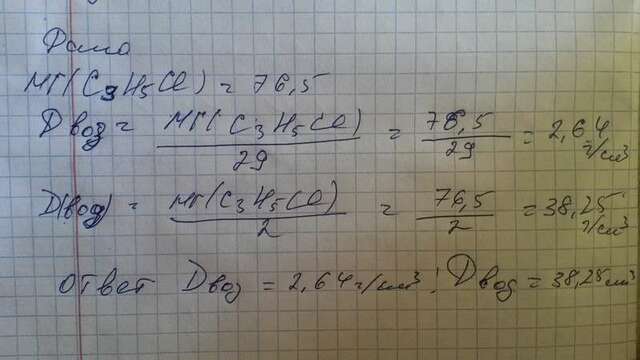 Дано
Mr(C3H5Cl) = 76,5
Dвоз = Mr(C3H5Cl) / 29 = 76,5 / 29 = 2,64 г/см³
D(вод) = Mr(C3H5Cl) / 2 = 76,5 / 2 = 38,25 г/см³
ответ Dвоз = 2,64 г/см³; Dвод = 38,25 см³